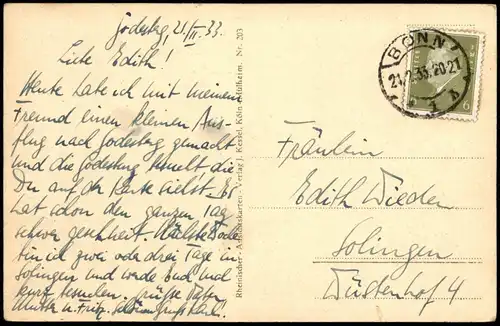 Godesberg, 21/II. 33.
Liebe Edith!
Heute habe ich mit meinem
Freund einen kleinen Aus-
flug nach Godesberg gemacht
und die Godesburg die
Du auf der Karte siehst. Es
hat schon den ganzen Tag
schwer geschneit. Nächste Woche
bin ich zwei oder drei Tage in
Solingen und werde Euch mal
kurz besuchen. Grüße
Mutter u. Fritz.
Rheinischer Verlag J. Kessel, Köln Nr. 203
BONN
21.2.33.20-21
6
Fräulein
Edith Wieden
Solingen
Düstenhof 4